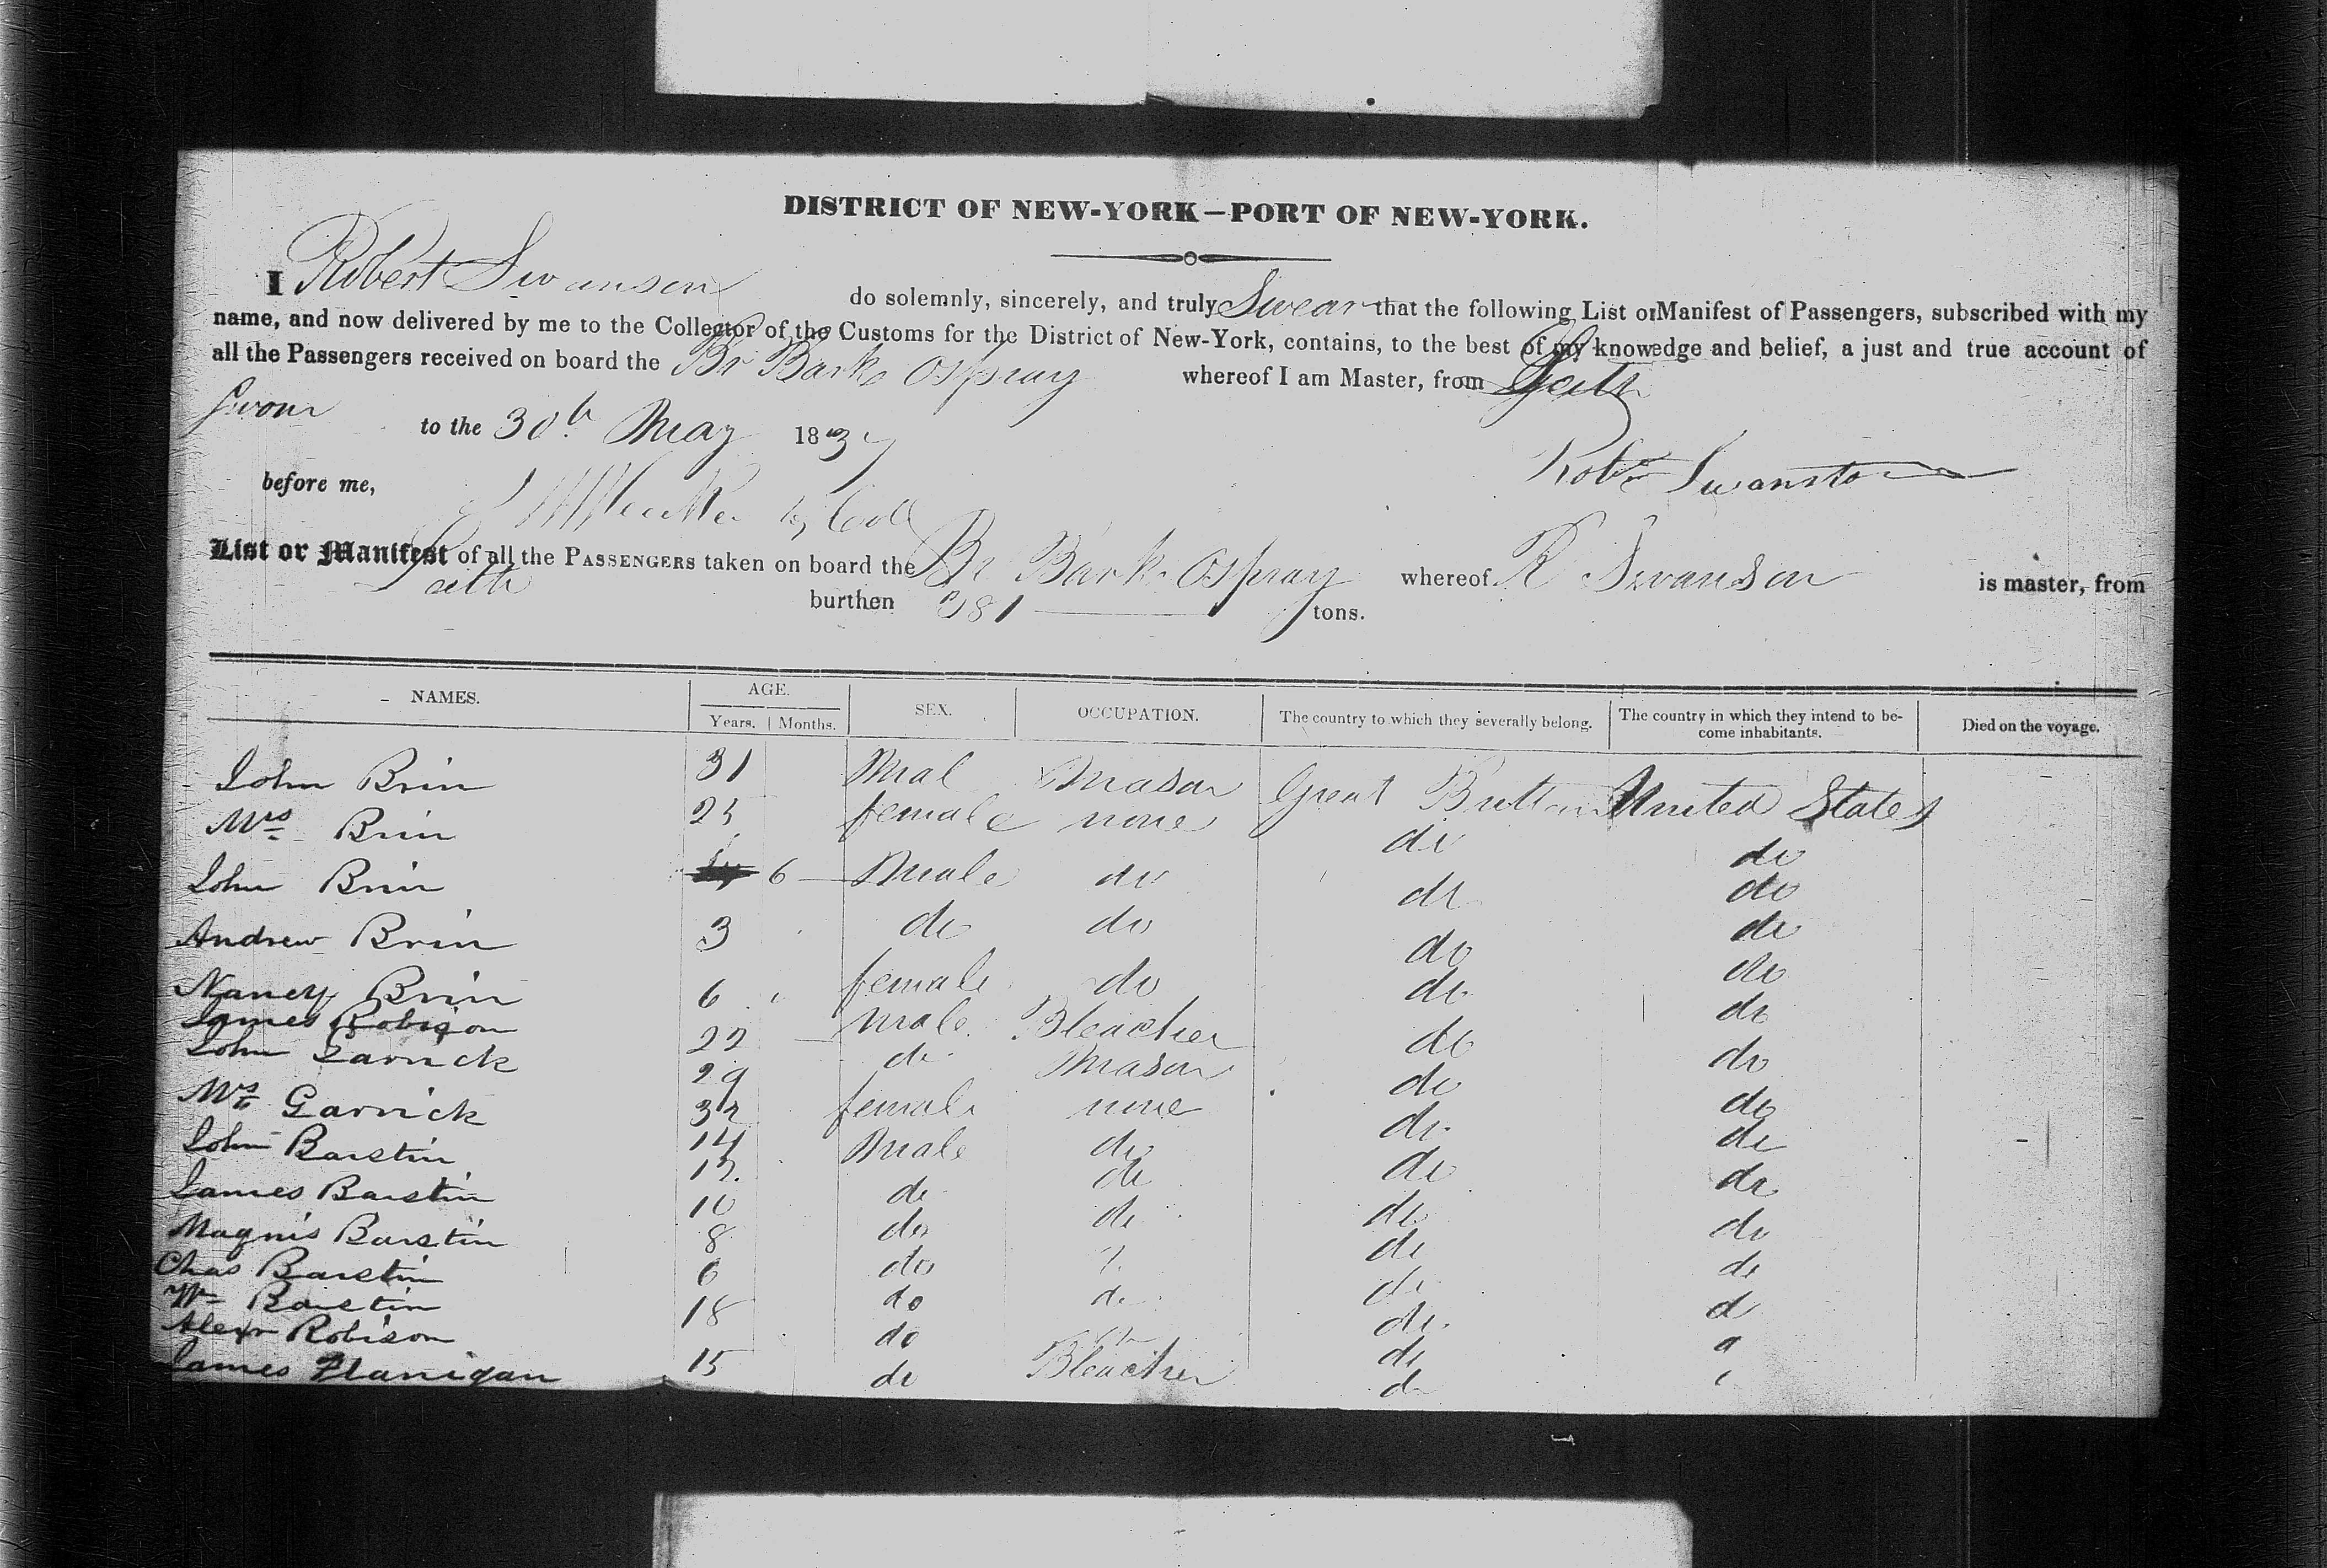 DISTRICT OF NEW-YORK—PORT OF NEW-YORK.
I Robert Swanson do solemnly, sincerely, and truly Swear that the following List or Manifest of Passengers, subscribed with my
name, and now delivered by me to the Collector of the Customs for the District of New-York, contains, to the best of my knowedge and belief, a just and true account of
all the Passengers received on board the Br Bark Ospray whereof I am Master, from Leith
Sworn to the 30th May 1837
Robt Swanston
before me,
List or Manifest of all the PASSENGERS taken on board the Br Bark Ospray whereof R Swanson is master, from
Leith burthen 381 tons.
NAMES. AGE. SEX. OCCUPATION. The country to which they severally belong. The country in which they intend to be- Died on the voyage.
Years. Months. come inhabitants.
John Brin 31 Mal Mason Great Brittan United States
Mrs Brin 25 female none do do
John Brin 6 Male do do do
Andrew Brin 3 do do do do
Nancy Brin 6 female do do do
James Robison 22 male Bleacher do do
John Garrick 29 do Mason do do
Mrs Garrick 32 female none do do
John Barstin 14 Male do do do
James Barstin 12 do do do do
Magnis Barstin 10 do do do do
Chas Barstin 8 do do do
Wm Barstin 6 do do do d
Alexr Robison 18 do do
James Flanigan 15 do Bleacher do